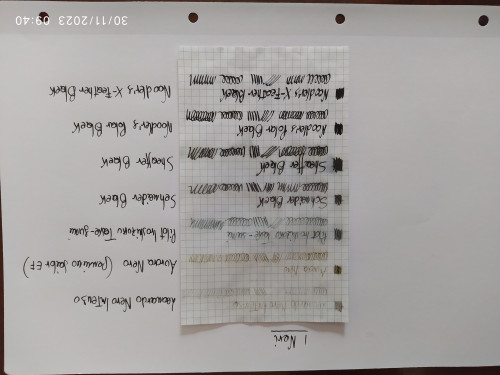 I Neri
Leonardo Nero Intenso
Leonardo Nero Intenso
Aurora Nero
Aurora Nero (pennino EF)
Pilot Iroshizuku Take-sumi
Pilot Iroshizuku Take-sumi
Schneider Black
Schneider Black
Sheaffer Black
Sheaffer Black
Noodler's Polar Black
Noodler's Polar Black
Noodler's X-Feather Black
Noodler's X-Feather Black
30/11/2023 09:40